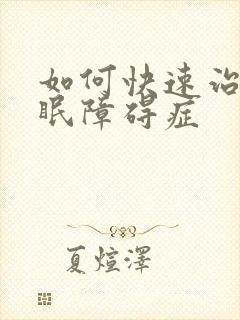 如何快速治
眠障碍症
夏煊澤